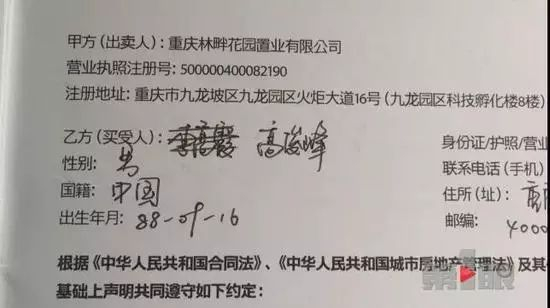 甲方（出卖人）：重庆林畔花园置业有限公司
营业执照注册号：500000400082190
注册地址：重庆市九龙坡区九龙园区火炬大道16号（九龙园区科技孵化楼8楼）
乙方（买受人）： 高浚峰
身份证/护照/营业
性别： 男
联系电话（手机）
国籍： 中国
住所（址）：
出生年月： 88-09-16
邮编： 4000
根据《中华人民共和国合同法》、《中华人民共和国城市房地产管理法》及其
基础上声明共同遵守如下约定：
第1眼